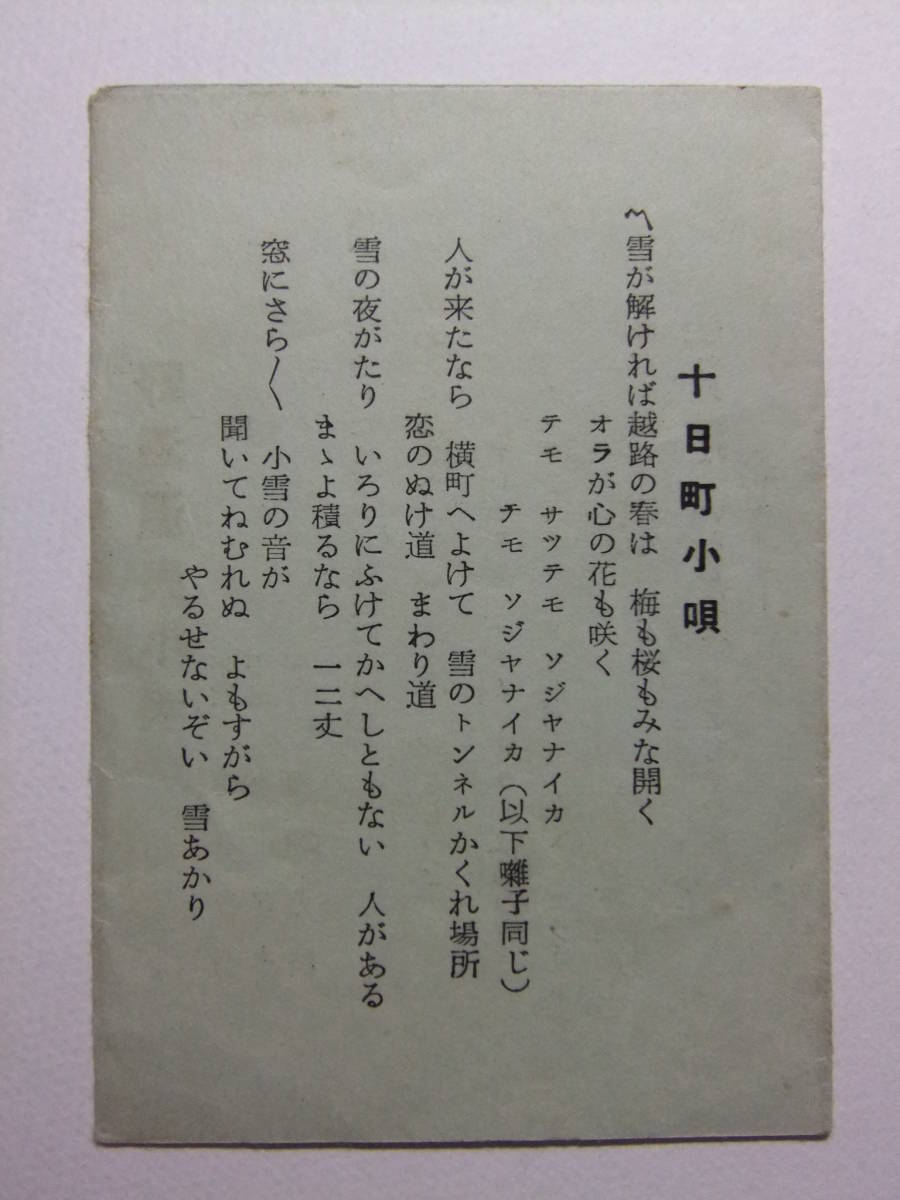 十日町小唄
〽雪が解ければ越路の春は　梅も桜もみな開く
オラが心の花も咲く
テモ　サツテモ　ソジヤナイカ
テモ　ソジヤナイカ（以下囃子同じ）
人が来たなら　横町へよけて　雪のトンネルかくれ場所
恋のぬけ道　まわり道
雪の夜がたり　いろりにふけてかへしともない　人がある
まゝよ積るなら　一二丈
窓にさら〳〵　小雪の音が
聞いてねむれぬ　よもすがら
やるせないぞい　雪あかり